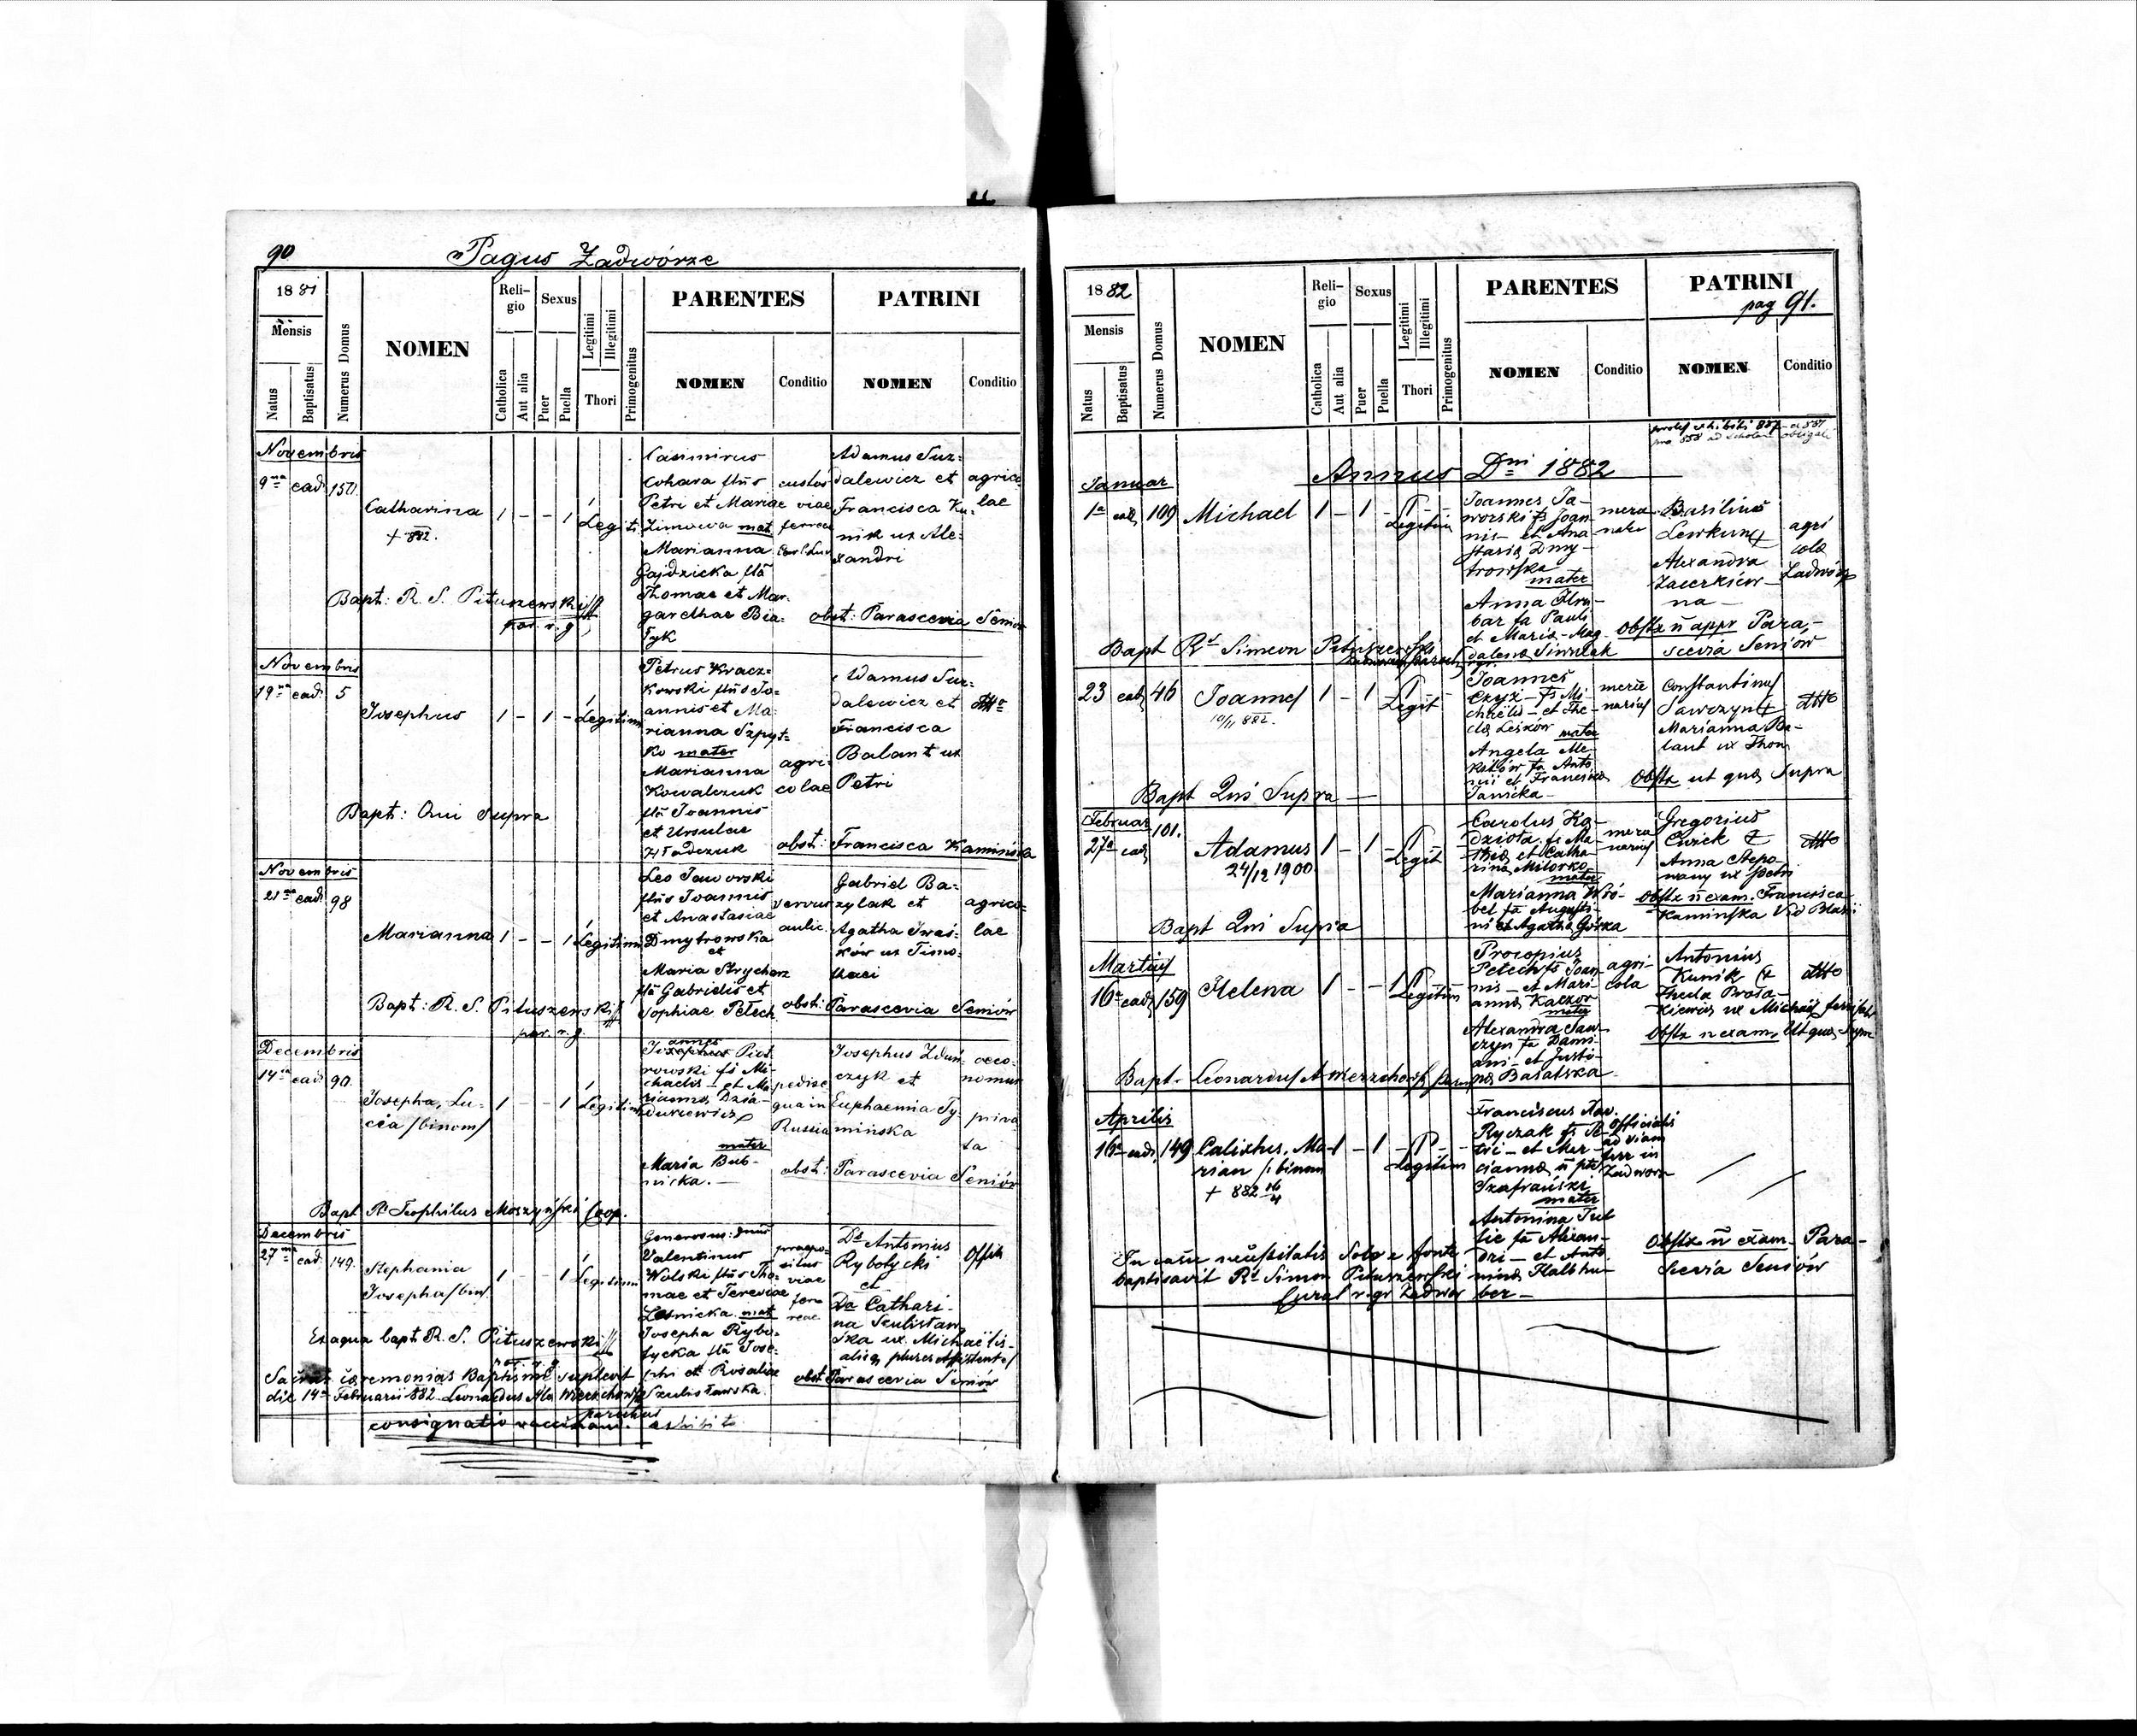 90
Pagus Zadwórze
1881
Mensis
Natus
Baptisatus
Numerus Domus
NOMEN
Religio
Catholica
Aut alia
Sexus
Puer
Puella
Legitimi
Illegitimi
Thori
Primogenitus
PARENTES
NOMEN
Conditio
PATRINI
NOMEN
Conditio
Novembris
9na ead. 150.
Catharina
+ 882.
1 - - 1 Legiti
Casimirus
Cohara flius
Petri et Mariae
Zimowa mat
Marianna
Gajdzicka flā
Thomae et Mar-
garethae Bia-
łyk
custos
viae
ferreae
Adamus Suz-
dalewicz et
Francisca Ku-
nik ux Ale-
xandri
agrico
lae
Bapt: R. S. Pituszewski
par. r. g.
obst: Parascevia Seniór
Novembris
19na ead. 5
Josephus
1 - 1 - Legitimi
Petrus Kracz-
kowski flius Jo-
annis et Ma-
rianna Szpyt-
ko mater
Marianna
Kowalczuk
flā Joannis
et Ursulae
Władczuk
agri-
colae
Adamus Suz-
dalewicz et
Francisca
Balant ux
Petri
dtto
Bapt: Qui Supra
obst: Francisca Kamińska
Novembris
21na ead. 98
Marianna
1 - - 1 Legitimi
Leo Jaworski
flius Joannis
et Anastasiae
Dmytrowska
et
Maria Strycharz
flā Gabrielis et
Sophiae Petech
servus
aulic.
Gabriel Ba-
zylak et
Agatha Iwaś-
ków ux Timo-
thaei
agrico-
lae
Bapt: R. S. Pituszewski
par. r. g.
obst: Parascevia Seniór
Decembris
14na ead. 90.
Josepha, Lu-
cia /binom/
1 - - 1 Legitim
Josephus Piot
annes
rowski fs Mi-
chaelis et Ma
rianna Dzia-
durkiewicz
mater
Maria Bub-
nicka.
pedise
qua in
Russia
Josephus Zduń
czyk et
Euphaemia Ty
mińska
oeco-
nomus
priva
ta
obst: Parascevia Seniór
Bapt R. Teophilus Moszyński Coop.
Decembris
27ma ead. 149.
Stephania
Josepha/bin/
1 - - 1 Legitimi
Generosus: dnus
Valentinus
Wolski flius Tho-
mae et Teresiae
Leśnicka mat
Josepha Rybo-
tycka flā Jose-
phi et Rosaliae
Szulisławska.
praepo-
situs
viae
ferreae
Ds Antonius
Rybotycki
et
Da Cathari-
na Szulisław
ska ux. Michaëlis-
aliiq plures assistentes
Offic
Ex aqua bapt R. S. Pituszewski
par. r. g.
obst: Parascevia Seniór
Sacras ceremonias Baptismi suplevit
die 14a Februarii 882. Leonardus Ale Wierzchowski
parochus
consignatio vaccinam. exhibita
1882
Mensis
Natus
Baptisatus
Numerus Domus
NOMEN
Religio
Catholica
Aut alia
Sexus
Puer
Puella
Legitimi
Illegitimi
Thori
Primogenitus
PARENTES
NOMEN
Conditio
PATRINI
pag 91.
NOMEN
Conditio
Annus Dni 1882
Januar
1a ead. 109 Michael 1 - 1 - Legitim
Joannes Ja-
worski fs Joan-
nis et Ana-
stasia Dmy-
trowska
mater
Anna Hru-
bar fa Pauli
et Maria-Mag-
dalena Siwulak
merce-
narius
Basilius
Lewkun &
Alexandra
Zaczkiew-
na -
agri
cola
Zadwórz
Obstx n appr Para-
scevia Seniór
Bapt Rd Simeon Pituszewski
23 ead. 46 Joannes 1 - 1 Legit
10/11 882.
Joannes
Czyż fs Mi-
chaëlis et The-
cla Leśków mater
Angela Me-
kitów fa Anto
nii et Francisca
Janicka
merce
narius
Constantinus
Sawczyn &
Marianna Ba-
lant ux Thom
dtto
Obstx ut qua Supra
Bapt Qui Supra
Februar
27a ead. 101. Adamus 1 - 1 Legit
24/12 1900.
Carolus Ka-
dziota fs Ma-
thei et Catha-
rina Milorko
mater
Marianna Wró-
bel fa Augusti-
ni et Agatha Górka
merce
narius
Gregorius
Cwick &
Anna Stepa-
nany ux Petri
dtto
Obstx n exam. Francisca
Kamińska Vid Blasii
Bapt Qui Supra
Martius
16a ead. 159 Helena 1 - - 1 Legitim
Procopius
Petech fs Joan-
nis et Mari-
anna Kaczor
mater
Alexandra Saw-
czyn fa Dami-
ani et Justi-
na Basalska
agri-
cola
Antonius
Kunik &
Thecla Prosa-
kiewicz ux Michaëlis
dtto
Obstx n exam. Ut qua Supra
Bapt. Leonardus A Wierzchowski
Aprilis
16a ead. 149 Calixtus, Ma-
rian /: binom
+ 882 16/4
1 - 1 - Legitim
Franciscus Xav.
Ryczak fs Pe-
tri et Mar-
cianna
Szafrański
mater
Antonina Tut
tie fa Alexan-
dri et Anto-
nina Halbhu-
ber
Officialis
ad viam
ferr in
Zadworze
Obstx n exam. Para-
scevia Seniów
In casu necessitatis Solo e fonte
baptisavit Rd Simon Pituszewski
Curat r. gr Zadwor